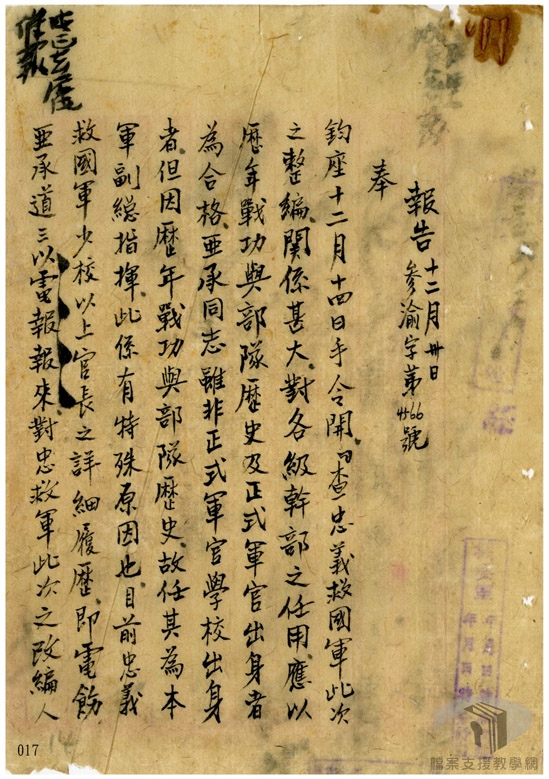 報告 十二月卅日
參渝字第4466號
奉
鈞座十二月十四日手令開「查忠義救國軍此次
之整編、關係甚大、對各級幹部之任用、應以
歷年戰功與部隊歷史及正式軍官出身者
為合格、亞承同志雖非正式軍官學校出身
者、但因歷年戰功與部隊歷史、故任其為本
軍副總指揮、此係有特殊原因也、目前忠義
救國軍少校以上官長之詳細履歷、即電飭
亞承道三以電報報來、對忠救軍此次之改編人
017
檔案支援教學網